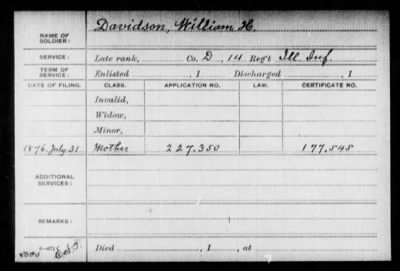 NAME OF SOLDIER: Davidson, William H.
SERVICE: Late rank, Co. D, 14 Reg't Ill. Inf.
TERM OF SERVICE: Enlisted , 1 Discharged , 1
DATE OF FILING. CLASS. APPLICATION NO. LAW. CERTIFICATE NO.
Invalid,
Widow,
Minor,
1876. July 31 Mother 227.350 177.545
ADDITIONAL SERVICES:
REMARKS:
Died , 1 , at